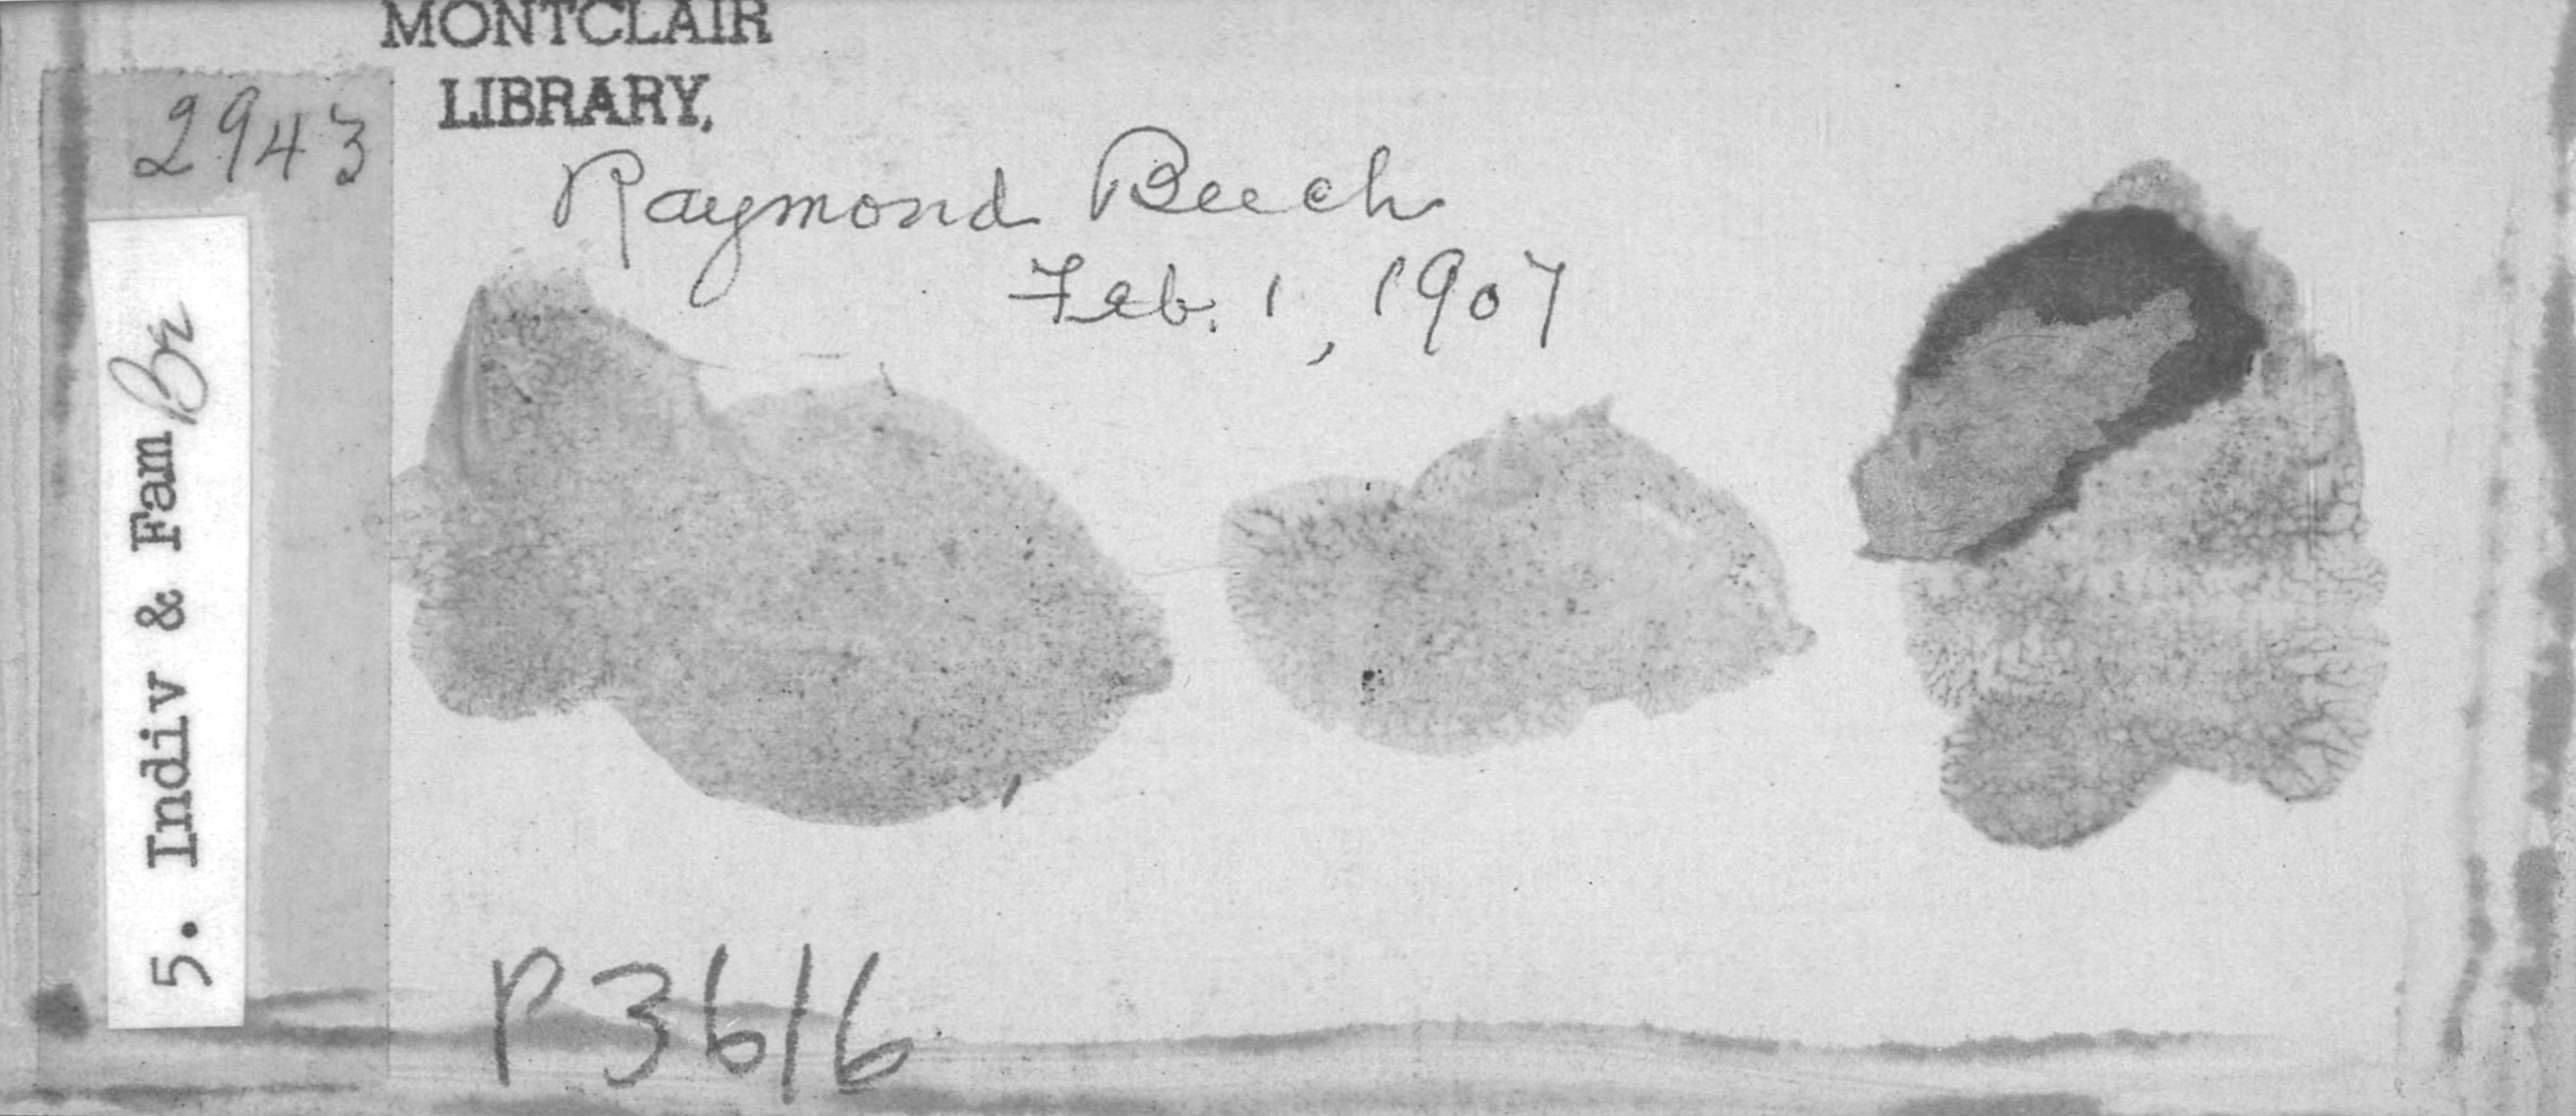 MONTCLAIR
LIBRARY,
2943
Raymond Beech
Feb. 1, 1907
5. Indiv & Fam Br
P3616